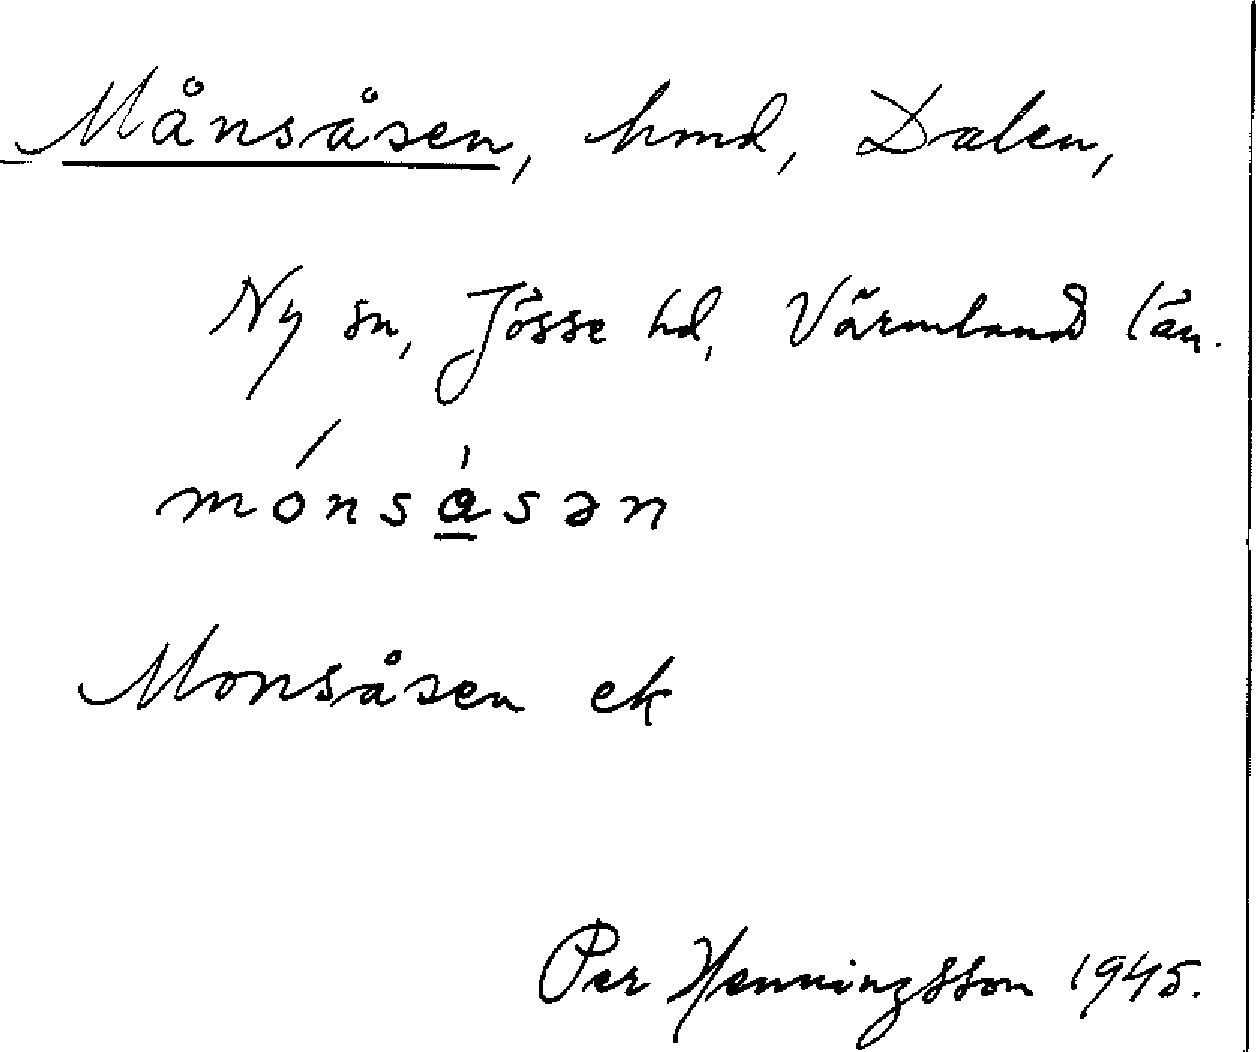 Månsåsen, hmd, Dalen,
Ny sn, Jösse hd, Värmland län.
mónsa̲̍sən
Monsåsen ek
Per Henningsson 1945.